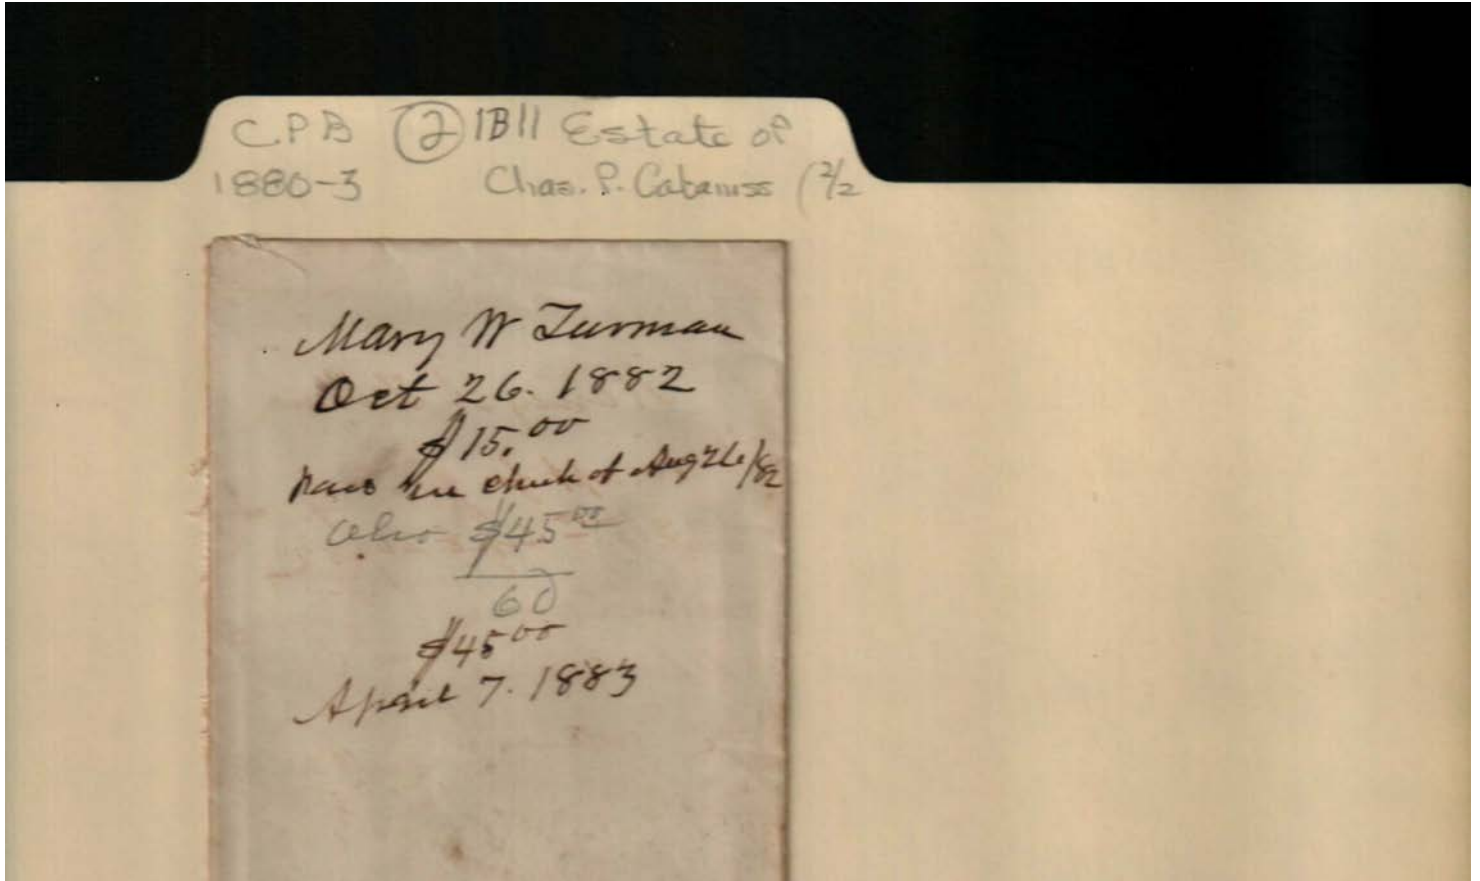 C.P.B ② 1B11 Estate of
1880-3 Chas. P. Cabaniss (2/2
Mary W Turman
Oct 26. 1882
$15.00
check of Aug 26/82
Also $45.00
60
$45.00
April 7. 1883